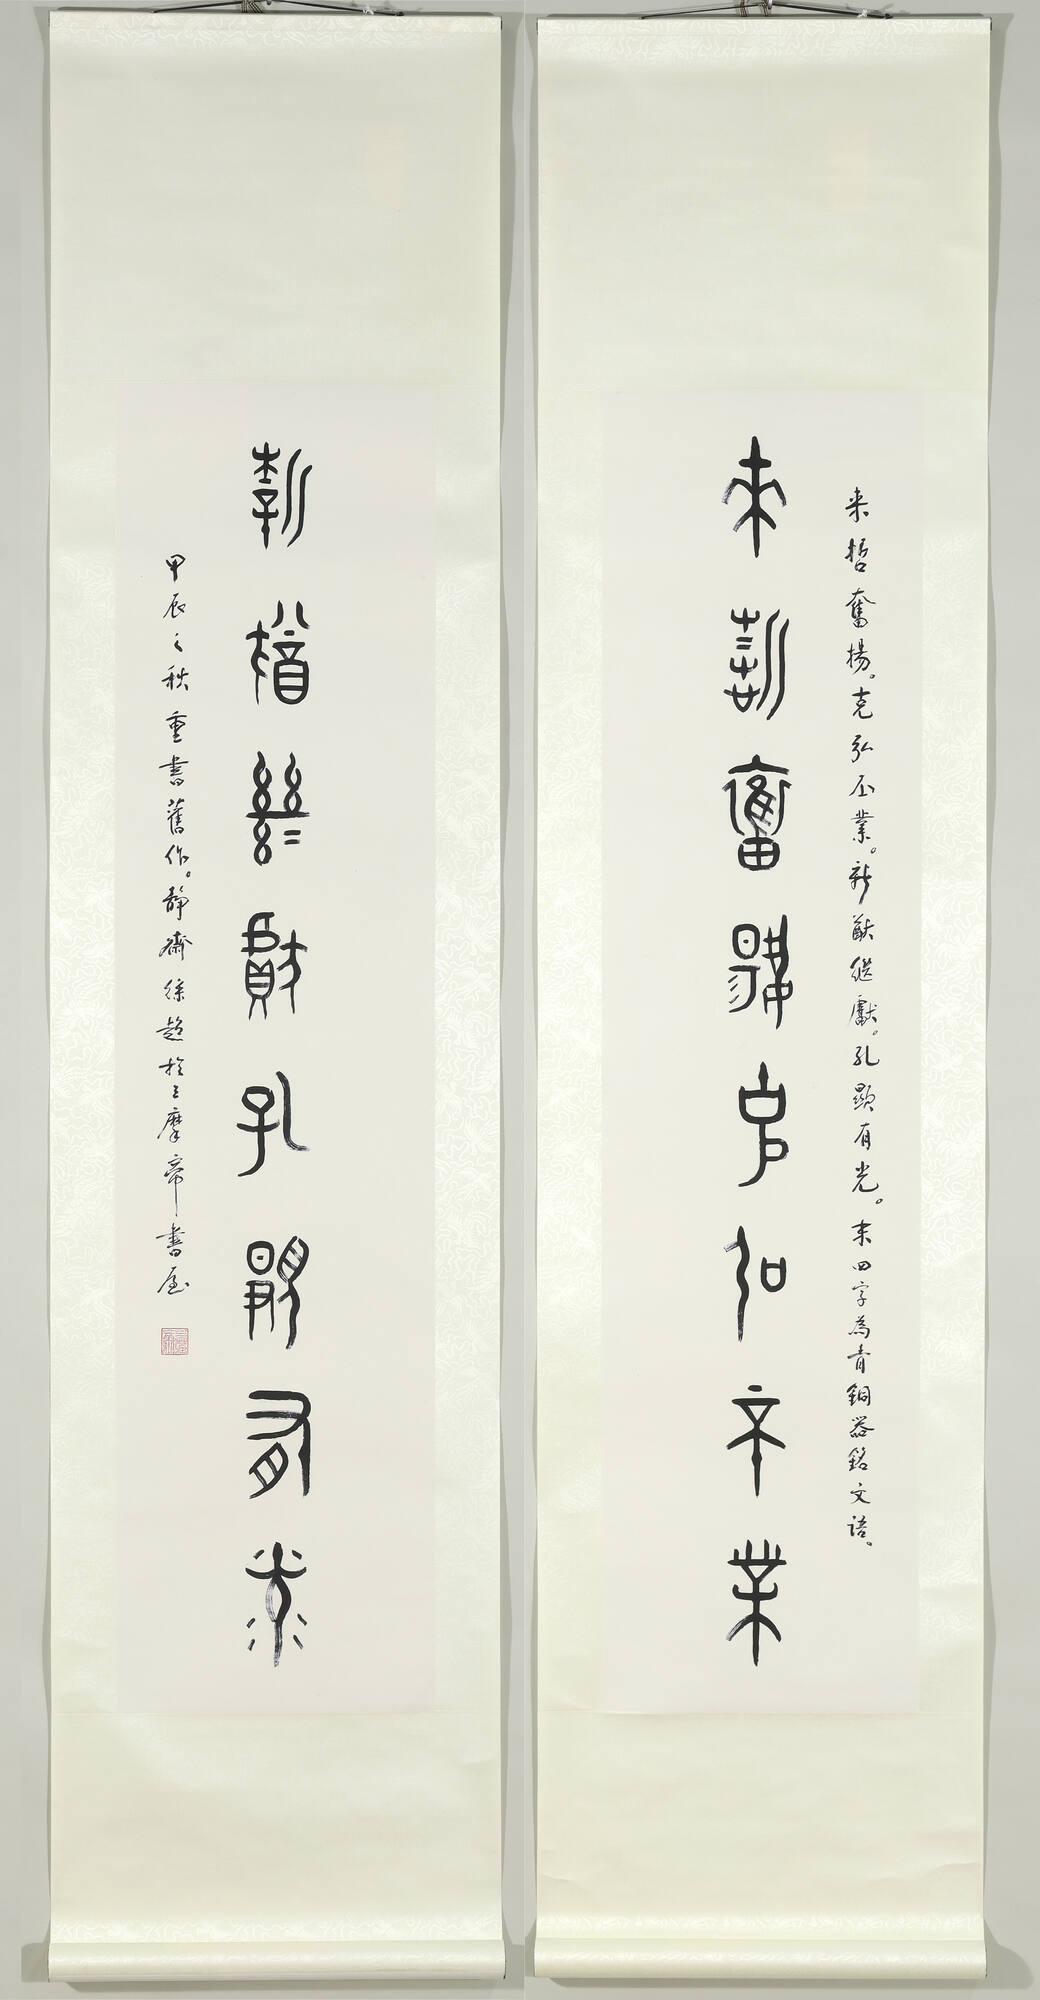 来哲奮揚克弘丕業
来哲奮揚。克弘丕業。新猷繼獻。孔顯有光。末四字為青銅器銘文語。
新猷繼獻孔顯有光
甲辰之秋重書舊作。靜齋徐超於三摩帝書屋